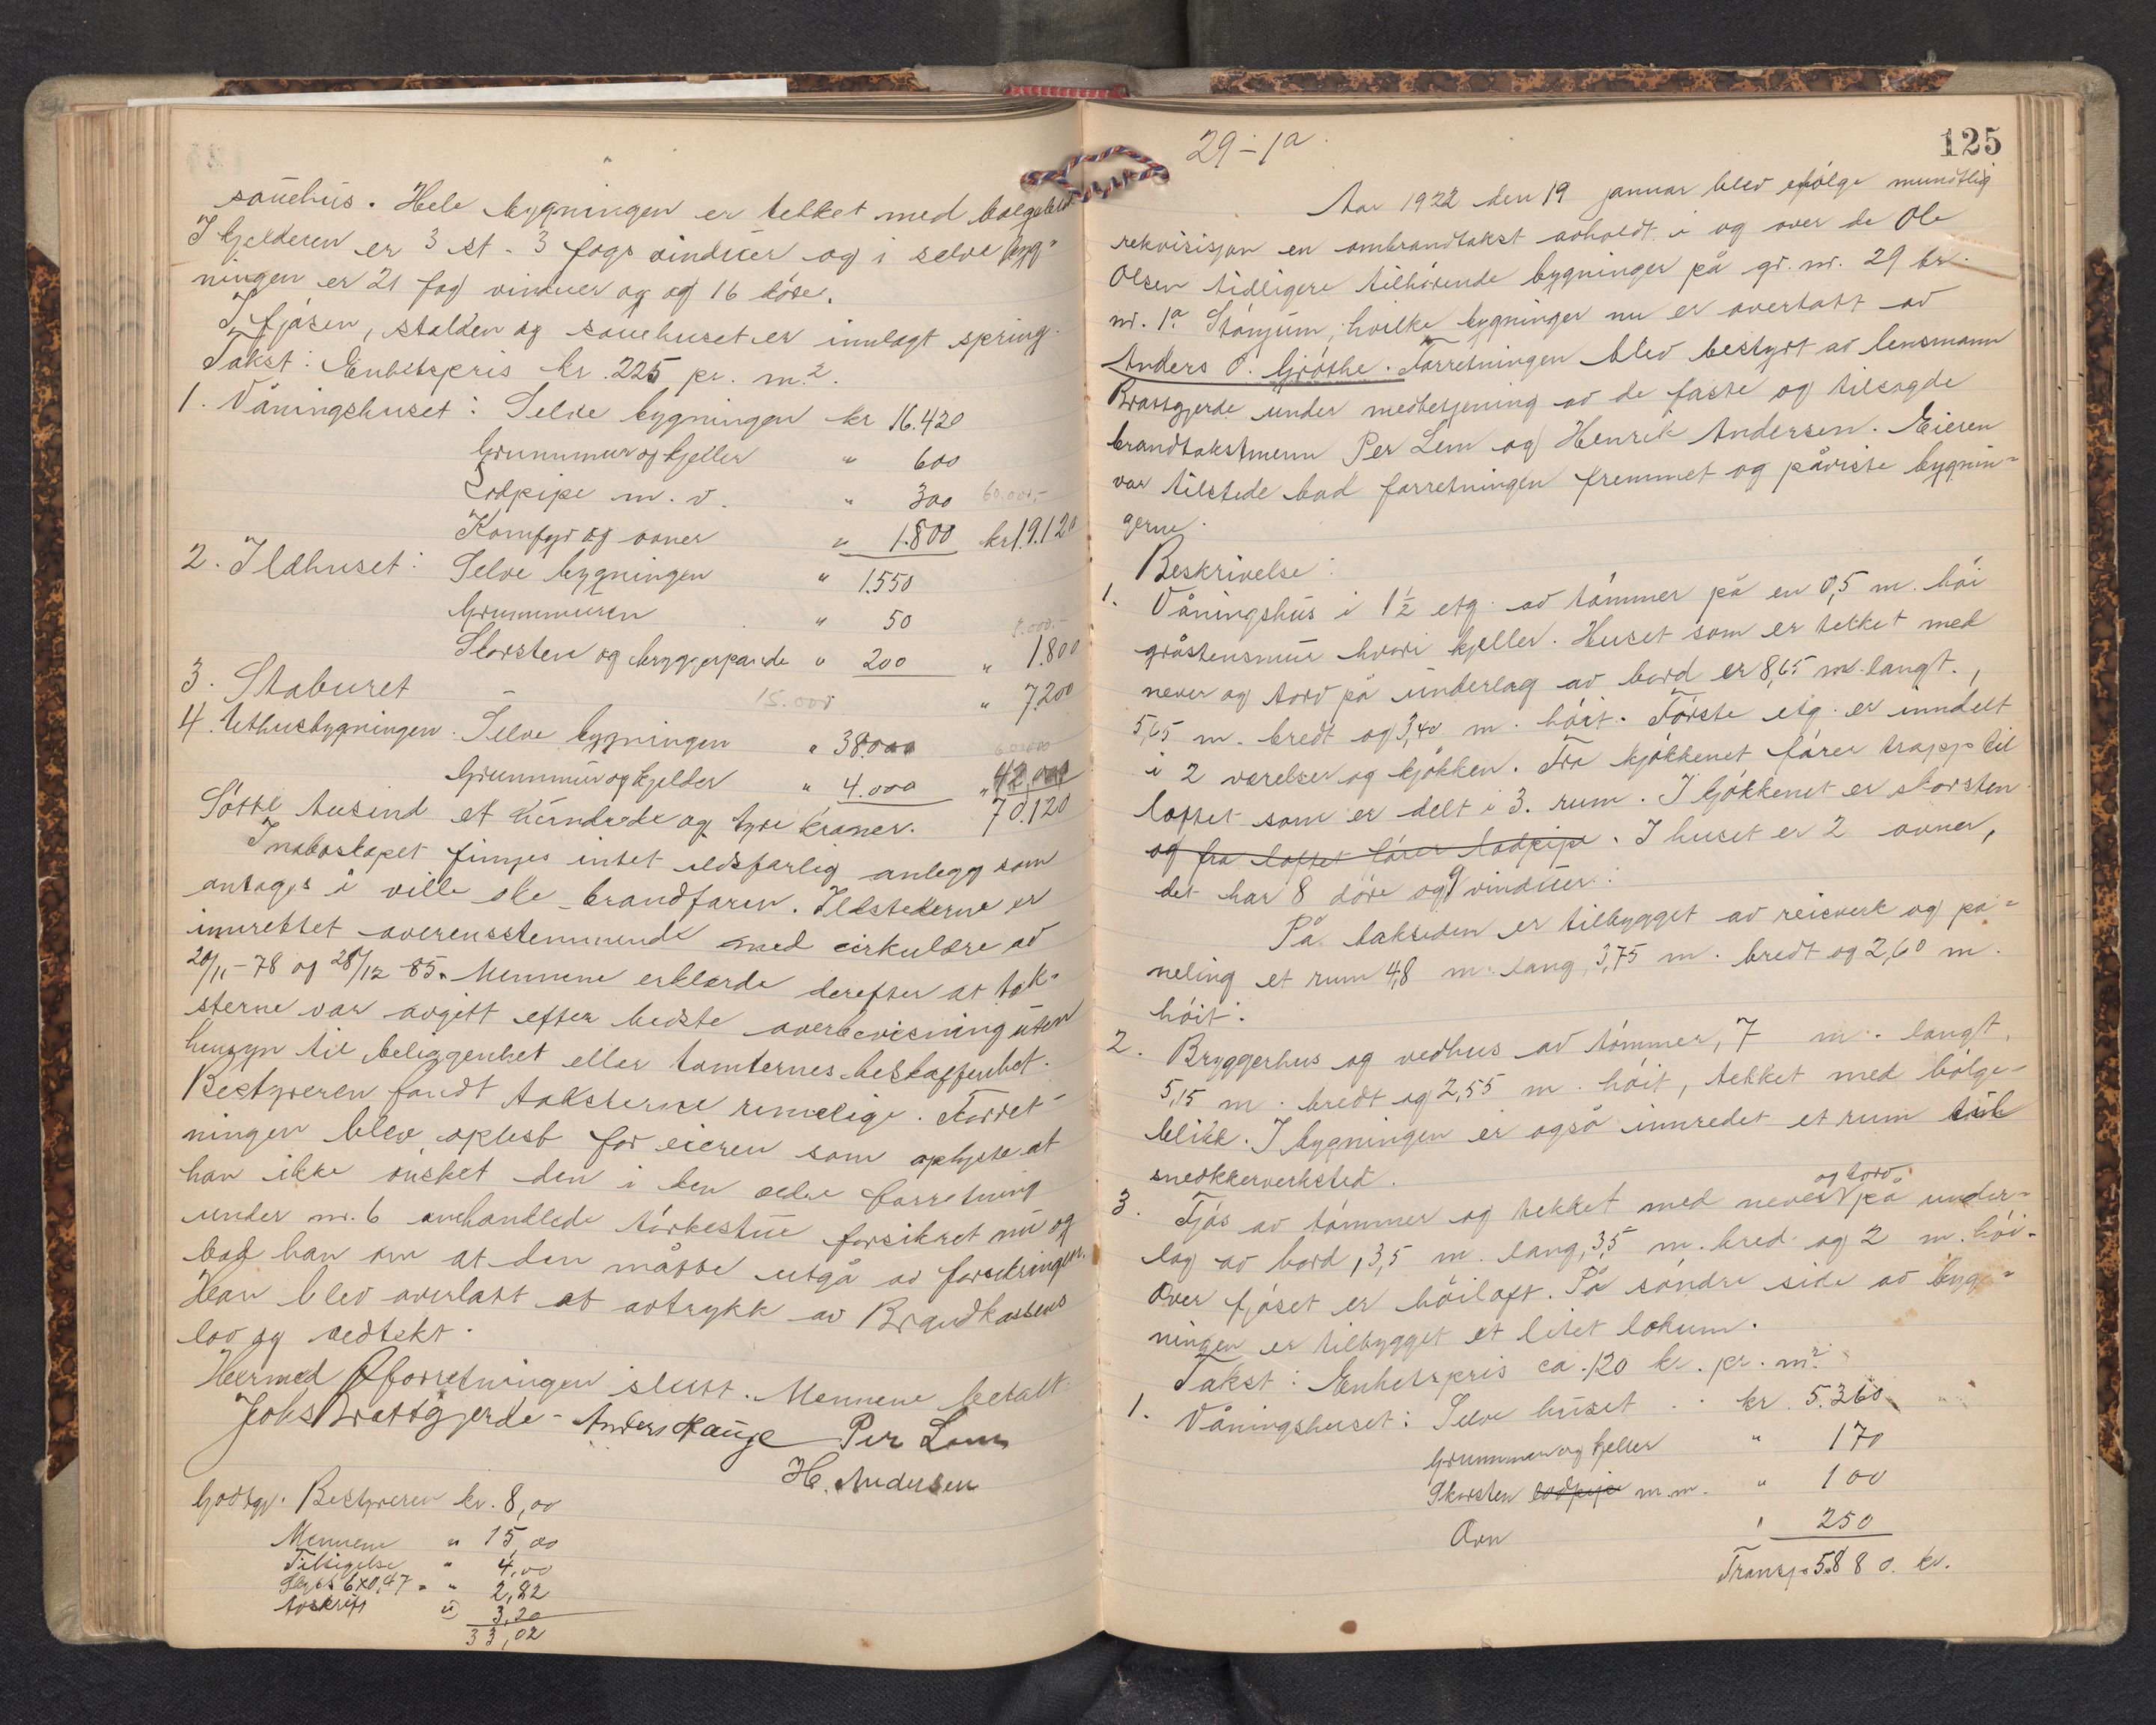 sauehus. Hele bygningen er tekket med bølgeblikk
I kjelderen er 3 st - 3 fags vinduer og i selve byg-
ningen er 21 fag vinduer og og 16 döre.
I fjösen, stalden og sauehuset er innlagt spring.
Takst: Enhetspris kr. 225 pr. m².
1. Våningshuset: Selve bygningen kr 16.420
Grunnmur og kjeller " 600
Lodpipe m. v. " 300 60.000,-
Komfyr og ovner " 1.800 kr 19.120
2. Ildhuset: Selve bygningen " 1.550
Grunnmuren " 50
Skorsten og bryggerpande " 200 " 1.800
3. Staburet - 15.000 " 7.200
4. Uthusbygningen. Selve bygningen " 38.000 60.000
Grunnmur og kjelder " 4.000 " 42.000
Sötti tusind et hundrede og tyve kroner. 70.120
I naboskapet finnes intet ildsfarlig anlegg som
antages å ville öke brandfaren. Ildstederne er
innrettet overensstemmende med cirkulære av
20/11-78 og 28/12 85. Mennene erklærde derefter at tak-
sterne var avgitt efter bedste overbevisning uten
hensyn til beliggenhet eller tomternes beskaffenhet.
Bestyreren fandt taksterne rimelige. Forret-
ningen blev oplest for eieren som oplyste at
han ikke önsket den i den ældre forretning
under nr. 6 omhandlede törkestue forsikret nu og
bad han om at den måtte utgå av forsikringen.
Han blev overlatt et avtrykk av Brandkassens
lov og vedtekt.
Hermed forretningen slutt. Mennene betalt
Johs Brattgjerde - Anders Hauge Per Lem
H. Andersen
Godtgj. Bestyreren kr. 8,00
Mennene " 15,00
Tilsigelse " 4,00
Skyss 6x0,47 " 2,82
Avskrift " 3,20
33,02
29-1a
125
Aar 1922 den 19 januar blev efölge mundtlig
rekvisisjon en ombrandtakst avholdt i og over de Ole
Olsen tidligere tilhörende bygninger på gr. nr. 29 br.
nr. 1a Stönjum, hvilke bygninger nu er overtatt av
Anders O. Gröthe. Forretningen blev bestyrt av lensmann
Brattgjerde under medbetjening av de faste og tilsagde
brandtakstmenn Per Lem og Henrik Andersen. Eieren
var tilstede bad forretningen fremmet og påviste bygnin-
gerne.
Beskrivelse:
1. Våningshus i 1½ etg. av tömmer på en 0,5 m. höi
gråstensmur hvori kjeller. Huset som er tekket med
never og torv på underlag av bord er 8,65 m. langt,
5,65 m. bredt og 3,40 m. höit. Förste etg. er inndelt
i 2 værelser og kjökken. Fra kjökkenet förer trapp til
loftet som er delt i 3. rum. I kjökkenet er skorsten
og fra loftet förer lodpipe. I huset er 2 ovner,
det har 8 döre og 9 vinduer.
På baksiden er tilbygget av reisverk og pa-
neling et rum 4,8 m. lang, 3,75 m. bredt og 2,60 m.
höit.
2. Bryggerhus og vedhus av tömmer, 7 m. langt,
5,15 m. bredt og 2,55 m. höit, tekket med bölge-
blikk. I bygningen er også innredet et rum til
snedkkerverksted.
og torv
3. Fjös av tömmer og tekket med never på under-
lag av bord, 3,5 m. lang, 3,5 m. bred og 2 m. höi.
Over fjöset er höiloft. På söndre side av byg-
ningen er tilbygget et litet lokum.
Takst: Enhetspris ca. 120 kr. pr. m².
1. Våningshuset: Selve huset .. kr. 5.360
Grunnmur og kjeller " 170
Skorsten lodpipe m.m. " 100
Ovn " 250
Transp. 5.880. kr.